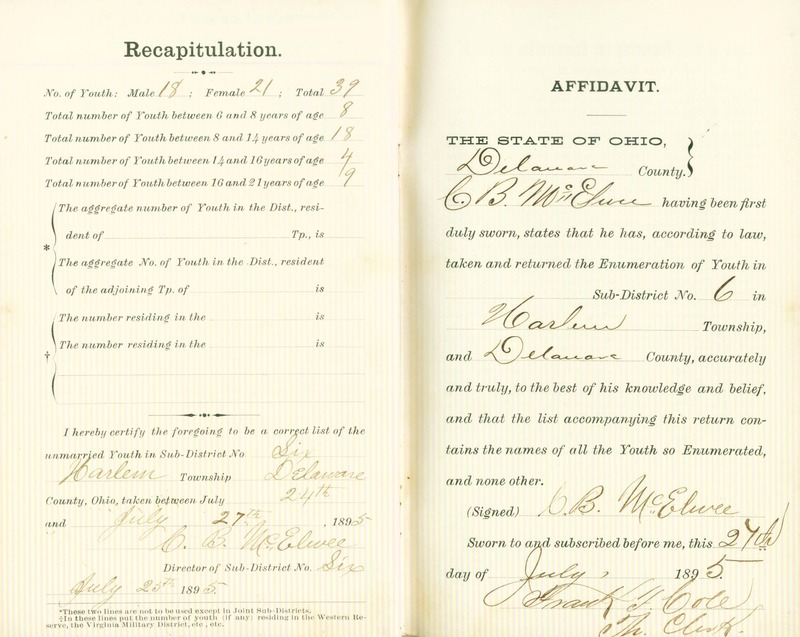 Recapitulation.
No. of Youth: Male 18 ; Female 21 ; Total 39
Total number of Youth between 6 and 8 years of age 8
Total number of Youth between 8 and 14 years of age 18
Total number of Youth between 14 and 16 years of age 4
Total number of Youth between 16 and 21 years of age 9
The aggregate number of Youth in the Dist., resi-
dent of Tp., is
*
The aggregate No. of Youth in the Dist., resident
of the adjoining Tp. of is
The number residing in the is
†
The number residing in the is
I hereby certify the foregoing to be a correct list of the
unmarried Youth in Sub-District No Six
Harlem Township Delaware
County, Ohio, taken between July 24th
and July 27th, 1895
C. B. McElwee
Director of Sub-District No. Six
July 1895.
*These two lines are not to be used except in Joint Sub-Districts.
†In these lines put the number of youth (if any) residing in the Western Re-
serve, the Virginia Military District, etc., etc.
AFFIDAVIT.
THE STATE OF OHIO,
Delaware County. }
C B. McElwee having been first
duly sworn, states that he has, according to law,
taken and returned the Enumeration of Youth in
Sub-District No. 6 in
Harlem Township,
and Delaware County, accurately
and truly, to the best of his knowledge and belief,
and that the list accompanying this return con-
tains the names of all the Youth so Enumerated,
and none other.
(Signed) C. B. McElwee
Sworn to and subscribed before me, this 27th
day of July, 1895.
Frank T. Cole
Clerk